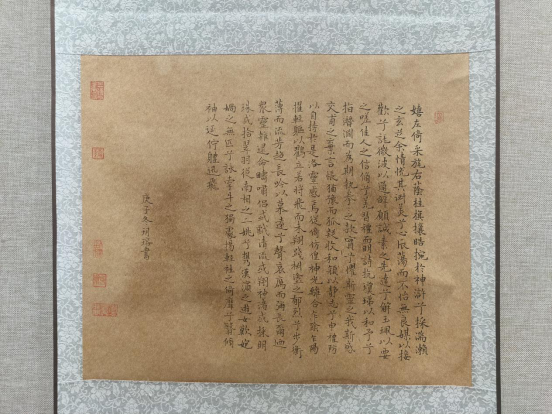 嬉左倚采旄右蔭桂旗攘皓捥於神滸兮採湍瀨
之玄芝余情悅其淑美兮心振蕩而不怡無良媒以接
歡兮託微波以通辭願誠素之先達兮解玉珮以要
之嗟佳人之信脩兮羌習禮而明詩抗瓊珶以和予兮
指潛淵而為期執拳拳之款實兮懼斯靈之我欺感
交甫之棄言悵猶豫而狐疑收和顏以靜志兮申禮防
以自持於是洛靈感焉徙倚仿偟神光離合乍陰乍陽
擢輕軀以鶴立若將飛而未翔踐椒塗之郁烈兮步衡
薄而流芳超長吟以慕遠兮聲哀厲而弥長爾迺
眾靈雜遝命疇嘯侶或戲清流或翔神渚或採明
珠或拾翠羽從南湘之二姚兮攜漢濱之遊女歎匏
媧之無匹兮詠牽牛之獨處揚輕袿之猗靡兮翳脩
袖以延佇體迅飛
庚子冬書